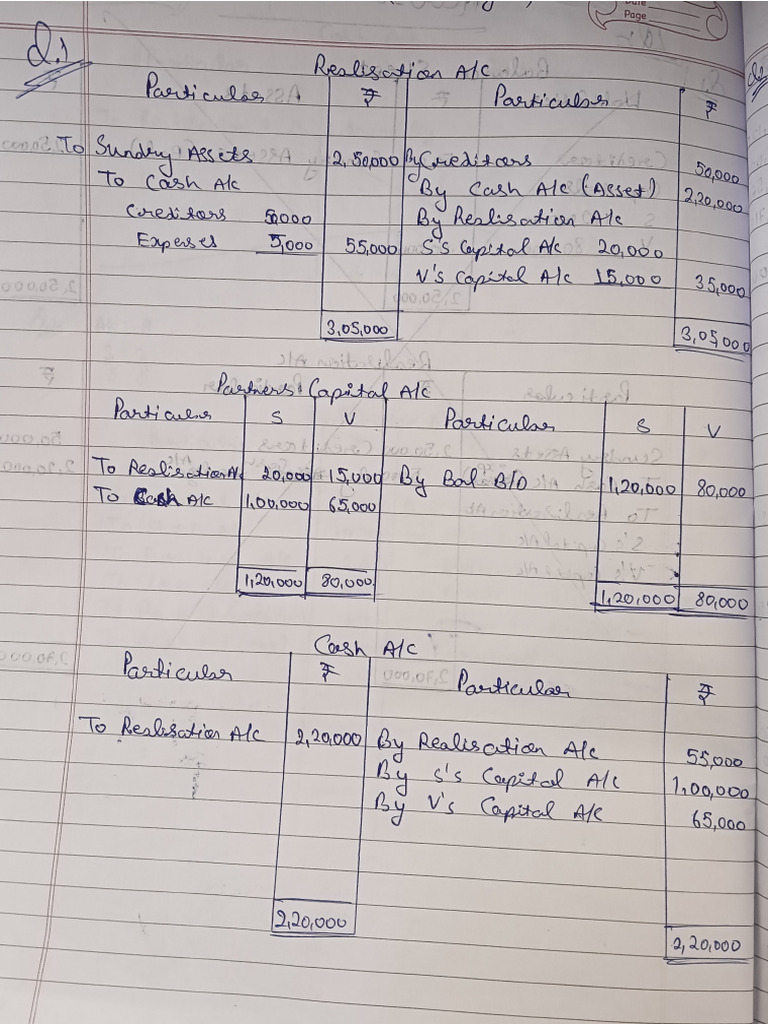 Page
Q.1
Realisation A/c
Particulars ₹ Particulars ₹
To Sundry Assets 2,50,000 By Creditors 50,000
To Cash A/c By Cash A/c (Asset) 2,20,000
Creditors 50,000 By Realisation A/c
Expenses 5,000 55,000 S's Capital A/c 20,000
V's Capital A/c 15,000 35,000
3,05,000 3,05,000
Partners Capital A/c
Particulars S V Particular S V
To Realisation A/c 20,000 15,000 By Bal B/D 1,20,000 80,000
To Cash A/c 1,00,000 65,000
1,20,000 80,000 1,20,000 80,000
Cash A/c
Particular ₹ Particular ₹
To Realisation A/c 2,20,000 By Realisation A/c 55,000
By S's Capital A/c 1,00,000
By V's Capital A/c 65,000
2,20,000 2,20,000